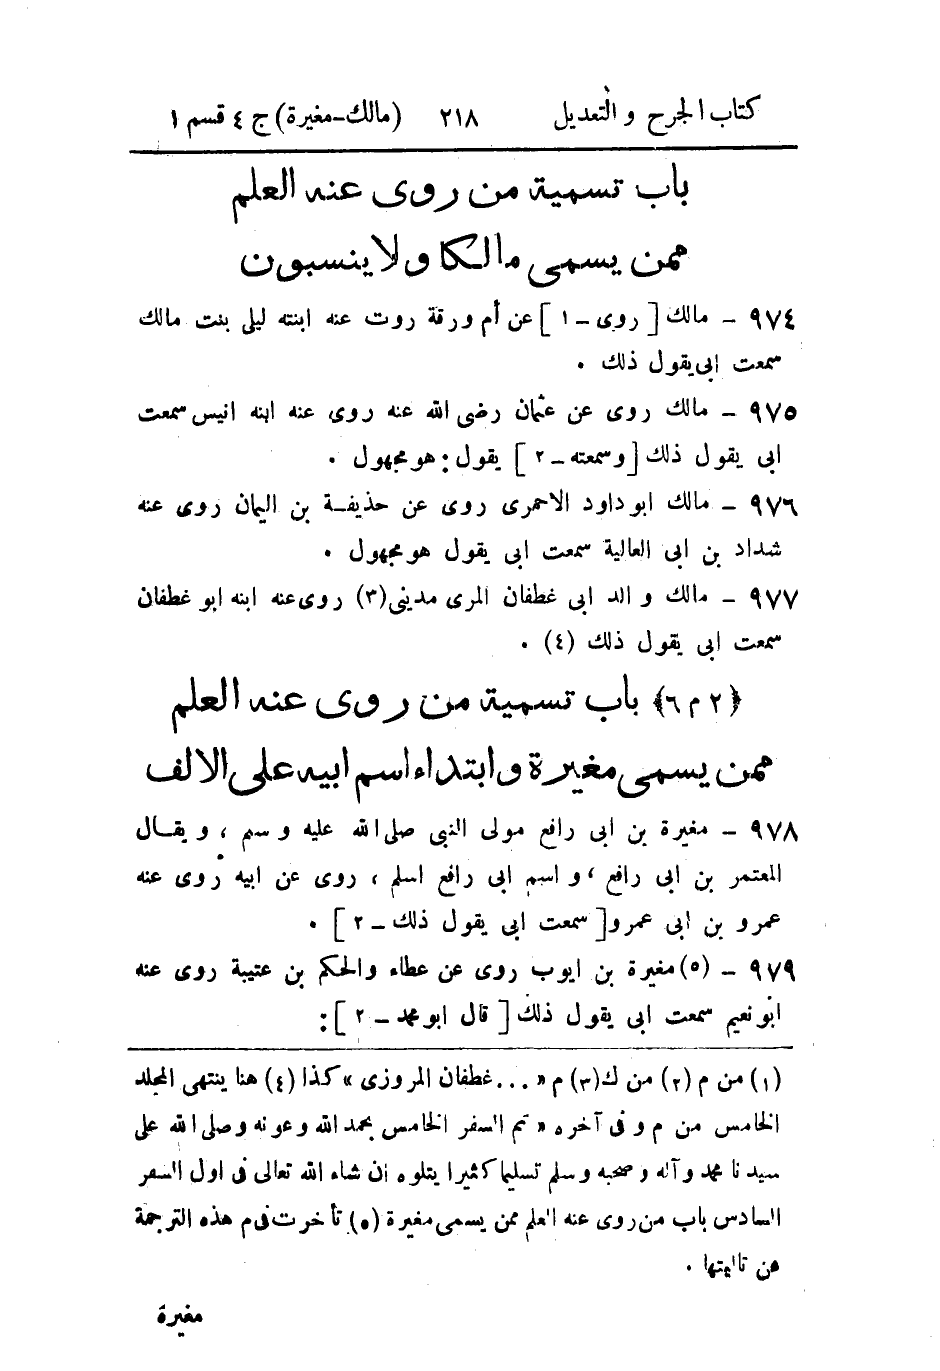 كتاب الجرح والتعديل ٢١٨ (مالك-مغيرة) ج ٤ قسم ١
باب تسمية من روى عنه العلم
ممن يسمى مالكا ولا ينسبون
٩٧٤ - مالك [روى - ١] عن أم ورقة روت عنه ابنته ليلى بنت مالك
سمعت ابى يقول ذلك .
٩٧٥ - مالك روى عن عثمان رضى الله عنه روى عنه ابنه انيس سمعت
ابى يقول ذلك [وسمعته - ٢] يقول: هو مجهول .
٩٧٦ - مالك ابو داود الاحمرى روى عن حذيفة بن اليمان روى عنه
شداد بن ابى العالية سمعت ابى يقول هو مجهول .
٩٧٧ - مالك والد ابى غطفان المرى مدينى (٣) روى عنه ابنه ابو غطفان
سمعت ابى يقول ذلك (٤) .
﴿٢ م ٦﴾ باب تسمية من روى عنه العلم
ممن يسمى مغيرة وابتداء اسم ابيه على الالف
٩٧٨ - مغيرة بن ابى رافع مولى النبى صلى الله عليه وسم ، ويقال
المعتمر بن ابى رافع ، واسم ابى رافع اسلم ، روى عن ابيه روى عنه
عمرو بن ابى عمرو [سمعت ابى يقول ذلك - ٢] .
٩٧٩ - (٥) مغيرة بن ايوب روى عن عطاء والحكم بن عتيبة روى عنه
ابو نعيم سمعت ابى يقول ذلك [قال ابو محمد - ٢]:
(١) من م (٢) من ك (٣) م «... غطفان المروزى» كذا (٤) هنا ينتهى المجلد
الخامس من م وفى آخره «تم السفر الخامس بحمد الله وعونه وصلى الله على
سيدنا محمد وآله وصحبه وسلم تسليما كثيرا يتلوه ان شاء الله تعالى فى اول السفر
السادس باب من روى عنه العلم ممن يسمى مغيرة (٥) تأخرت فى م هذه الترجمة
عن تاليتها .
مغيرة